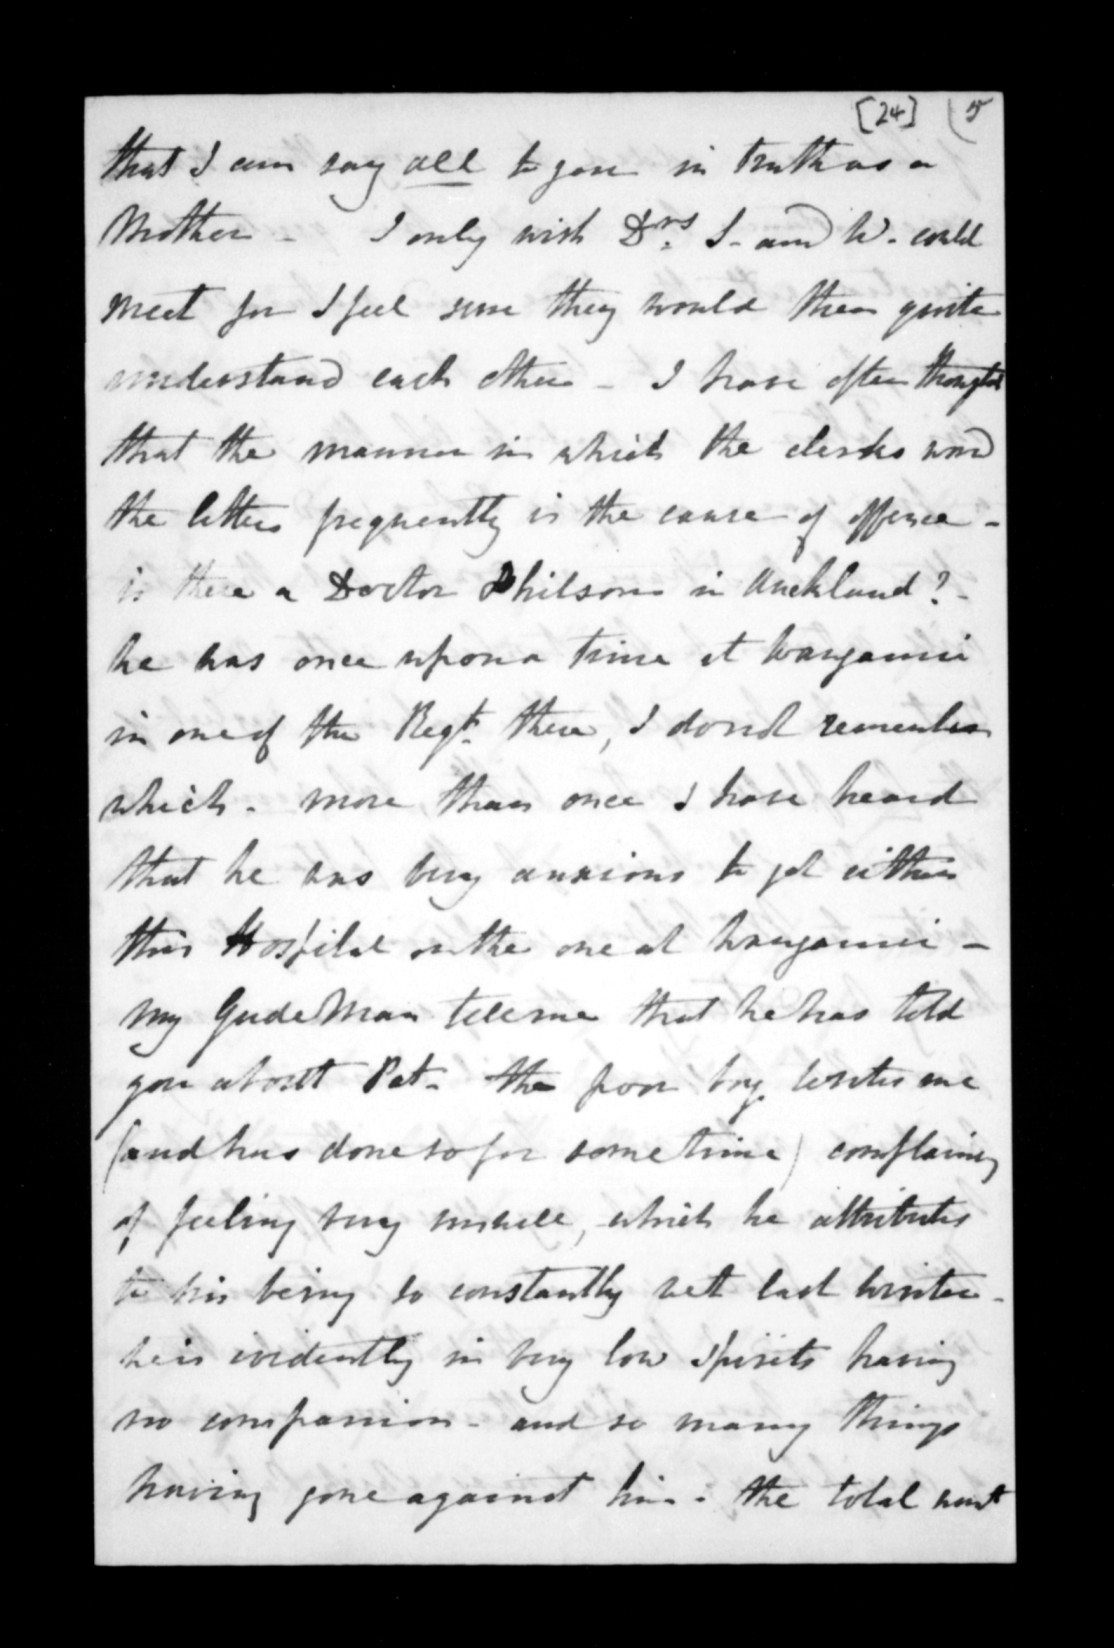 [24] (5
that I can say all to you in truth as a
Mother - I only wish Drs. I. and W. could
meet for I feel sure they would then quite
understand each other - I have often thought
that the manner in which the clerks word
the letters frequently is the cause of offence -
is there a Doctor Philson in Auckland? -
he was once upon a time at Wanganui
in one of the Regt. there, I do not remember
which - more than once I have heard
that he was very anxious to get either
this Hospital or the one at Wanganui -
my Gude Man tells me that he has told
you about Pat - the poor boy writes me
(and has done so for some time) complaining
of feeling very unwell, which he attributes
to his being so constantly wett last winter -
he is evidently in very low spirits having
no companion - and so many things
having gone against him - the total want